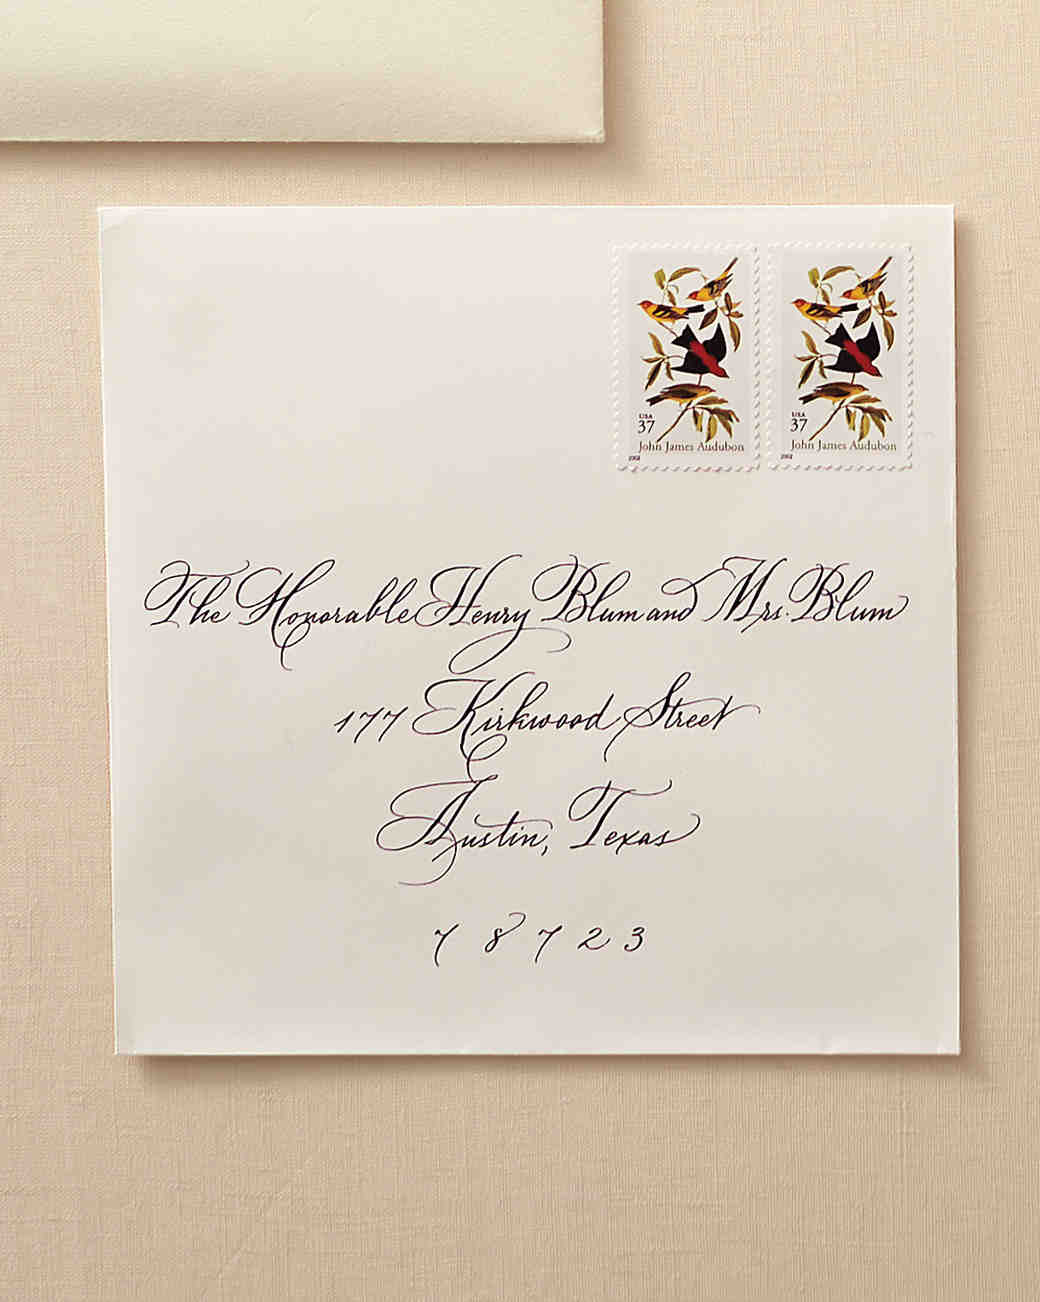 USA
37
John James Audubon
2002
USA
37
John James Audubon
2002
The Honorable Henry Blum and Mrs. Blum
177 Kirkwood Street
Austin, Texas
78723